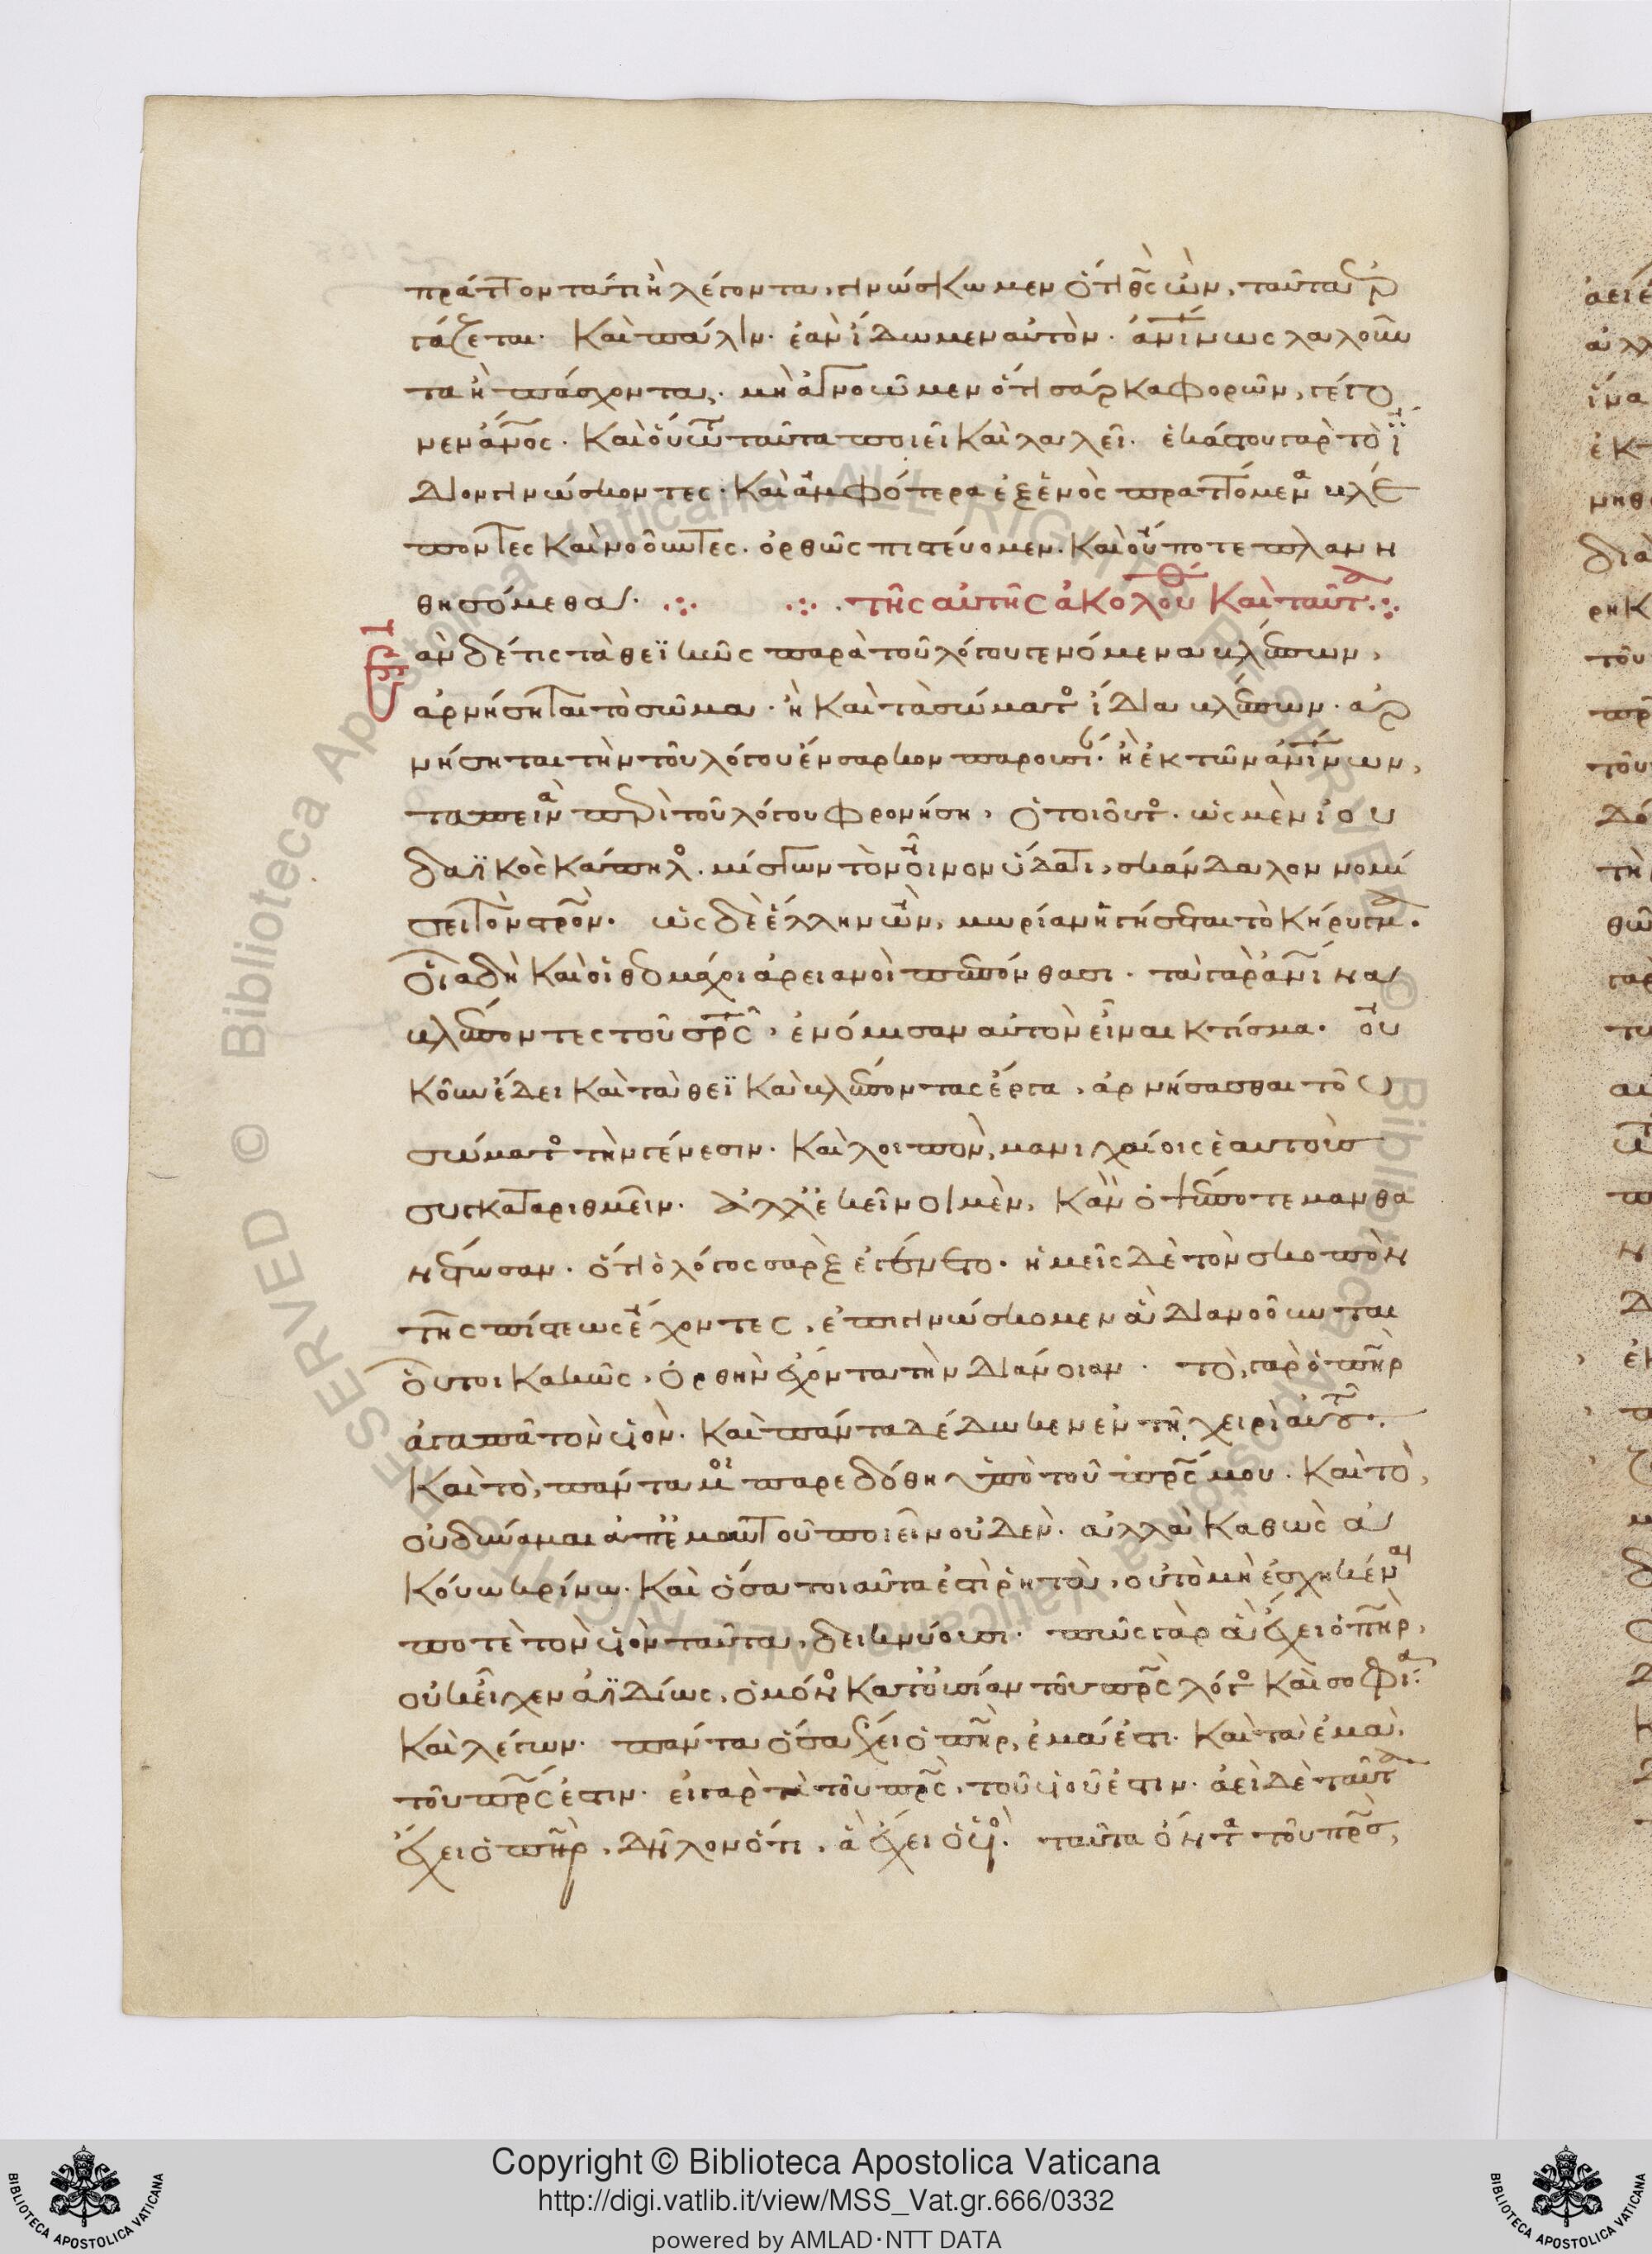 πράττοντά τι ἢ λέγοντα, γινώσκωμεν ὅτι θς ὢν, ταῦτα ἐρ
γάζεται. Καὶ πάλιν. ἐὰν ἴδωμεν αὐτὸν. ἀνίνως λαλοῦν
τα ἢ πάσχοντα. μὴ ἀγνοῶμεν ὅτι σάρκα φορῶν, γέγο
νεν ἄνος. Καὶ οὕτω ταῦτα ποιεῖ Καὶ λαλεῖ. ἑκάστου γὰρ τὸ ἴ
διον γινώσκοντες. Καὶ ἀμφότερα ἐξ ἑνὸς πραττόμενα βλέ
ποντες Καὶ νοοῦντες. ὀρθῶς πιστεύομεν. Καὶ οὔποτε πλανη
θησόμεθα.
τῆς αὐτῆς ἀκολου Καὶ ταῦτα
ἐὰν δέ τις τὰ θεϊκῶς παρὰ τοῦ λόγου γενόμενα βλέπων,
ἀρνήσηται τὸ σῶμα. ἢ Καὶ τὰ σώματος ἴδια βλέπων. ἀρ
νήσηται τὴν τοῦ λόγου ἔνσαρκον παρουσίαν. ἢ ἐκ τῶν ἀνίνων,
ταπεινὰ περὶ τοῦ λόγου φρονήση, ὁ τοιοῦτος. ὡς μὲν ἰου
δαϊκὸς Κάπηλος. μίσγων τὸν οἶνον ὕδατι, σκάνδαλον νομί
σει τὸν στρὸν. ὡς δὲ ἕλλην ὢν, μωρίαν ἡγήσεται τὸ Κήρυγμα.
οἷα δὴ Καὶ οἱ θεομάχοι ἀρειανοὶ πεπόνθασι. τὰ γὰρ ἀνίνα
βλέποντες τοῦ σρς, ἐνόμισαν αὐτὸν εἶναι κτίσμα. οὐ
κοῦν ἔδει Καὶ τὰ θεϊκὰ βλέποντας ἔργα, ἀρνήσασθαι τοῦ
σώματος τὴν γένεσιν. Καὶ λοιπὸν, μανιχαίοις ἑαυτοὺς
συγκαταριθμεῖν. ἀλλ' ἐκεῖνοι μὲν, Κἂν ὀψέποτε μανθα
νέτωσαν. ὅτι ὁ λόγος σὰρξ ἐγένετο. ἡμεῖς δὲ τὸν σκοπὸν
τῆς πίστεως ἔχοντες, ἐπιγινώσκομεν ἃ διανοοῦνται
οὗτοι κακῶς, ὀρθὴν ἔχοντα τὴν διάνοιαν. τὸ, γὰρ ὁ πηρ
ἀγαπᾶ τὸν ὑὸν. Καὶ πάντα δέδωκεν ἐν τῆ χειρὶ αὐτοῦ.
Καὶ τὸ, πάντα μοι παρεδόθη ὑπὸ τοῦ πρς μου. Καὶ τὸ,
οὐ δύναμαι ἀπ' ἐμαυτοῦ ποιεῖν οὐδέν. ἀλλὰ Καθὼς ἀ
κούω κρίνω. Καὶ ὅσα τοιαῦτα ἐστὶ ῥητὰ, οὐ τὸ μὴ ἐσχηκέναι
ποτὲ τὸν ὑὸν ταῦτα, δεικνύουσι. πῶς γὰρ ἃ ἔχει ὁ πηρ,
οὐκ εἶχεν ἀϊδίως, ὁ μόνος κατ' οὐσίαν τοῦ πρς λόγος Καὶ σοφία.
Καὶ λέγων. πάντα ὅσα ἔχει ὁ πηρ, ἐμά ἐστι. Καὶ τὰ ἐμὰ,
τοῦ πρς ἐστιν. εἰ γὰρ τὰ τοῦ πρς, τοῦ ὑοῦ ἐστιν. ἀεὶ δὲ ταῦτα
ἔχει ὁ πηρ, δῆλον ὅτι, ἃ ἔχει ὁ ὑὸς. ταῦτα ὄντα τοῦ πρς,
Copyright © Biblioteca Apostolica Vaticana
http://digi.vatlib.it/view/MSS_Vat.gr.666/0332
powered by AMLAD·NTT DATA
BIBLIOTECA APOSTOLICA VATICANA
BIBLIOTECA APOSTOLICA VATICANA